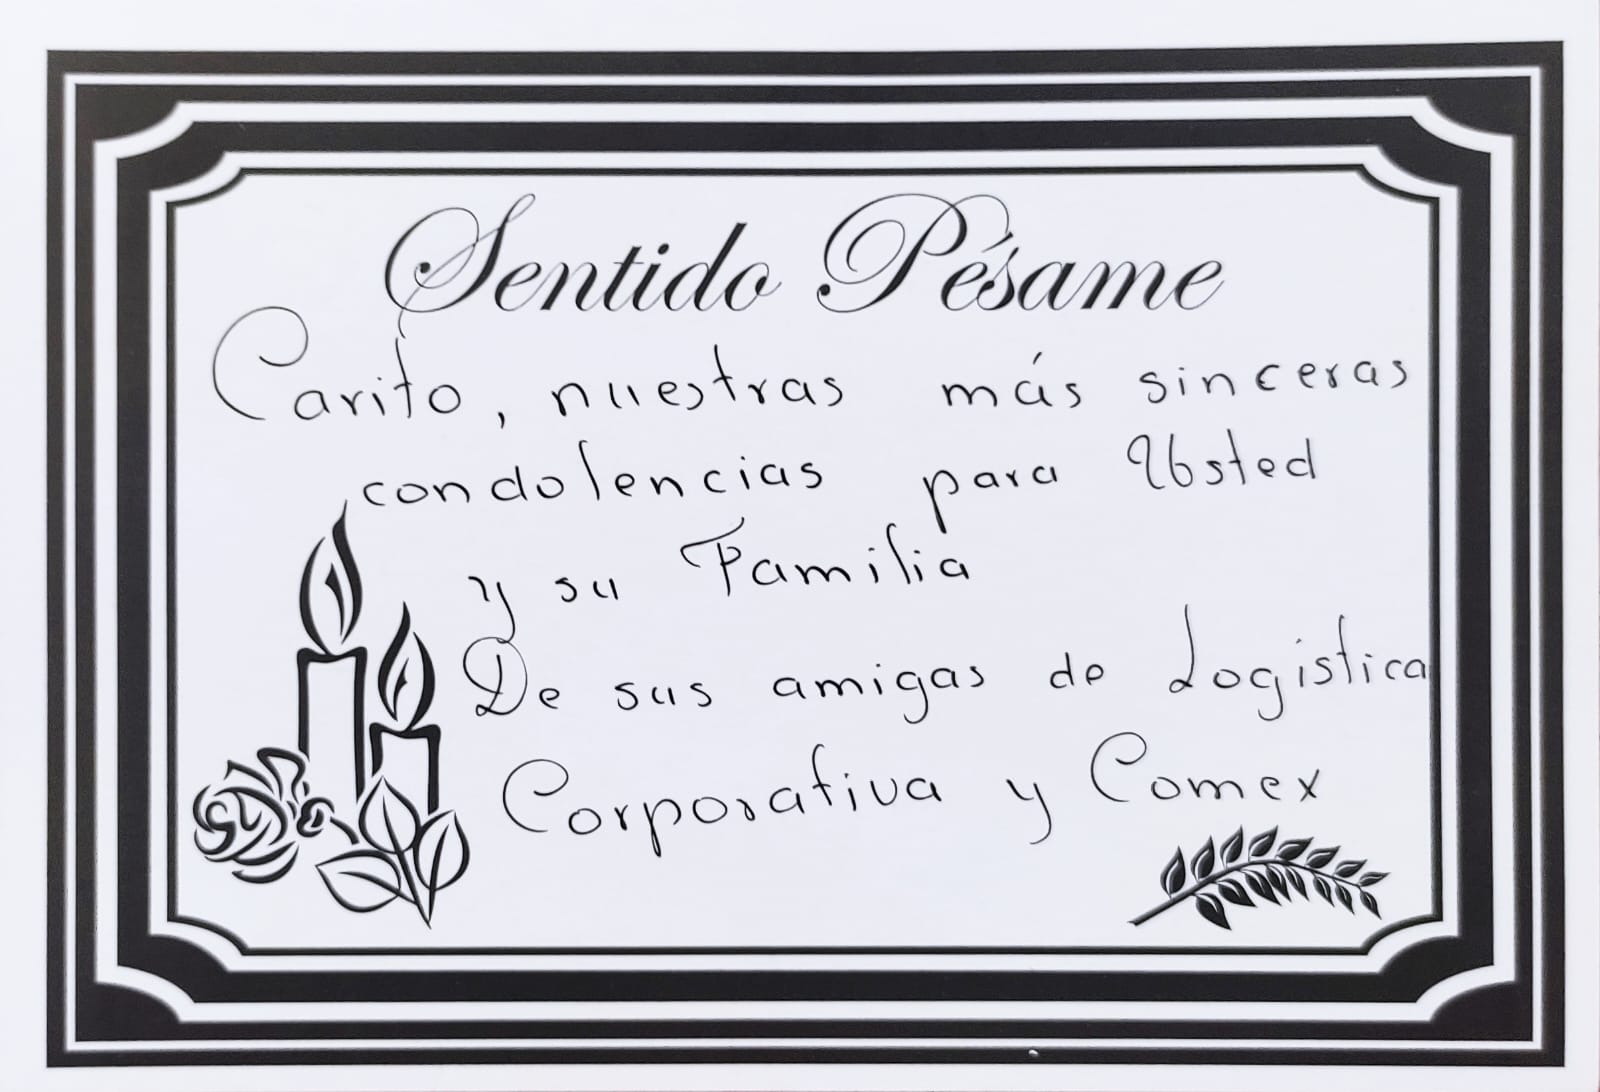 Sentido Pésame
Carito, nuestras más sinceras
condolencias para Usted
y su Familia
De sus amigas de Logística
Corporativa y Comex